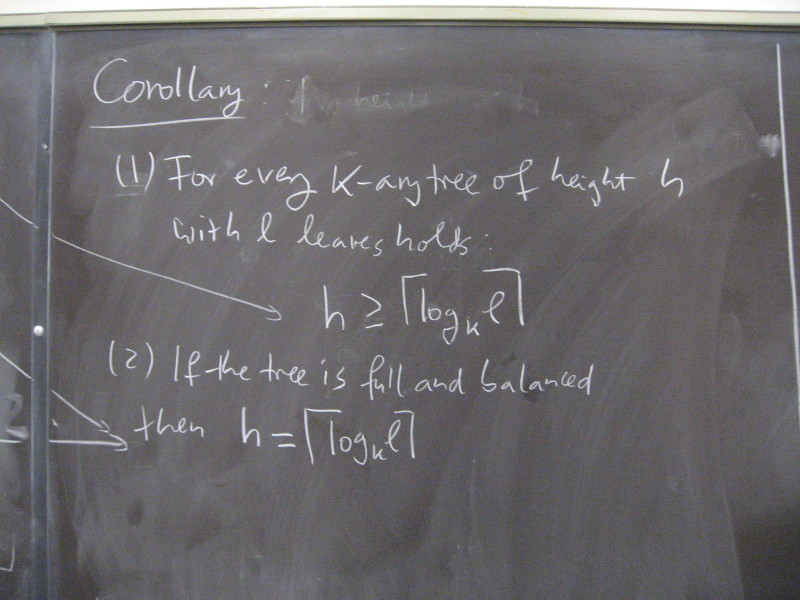 Corollary:
(1) For every K-ary tree of height h
with l leaves holds:
h ≥ ⌈logₖ l⌉
(2) If the tree is full and balanced
then h = ⌈logₖ l⌉
2